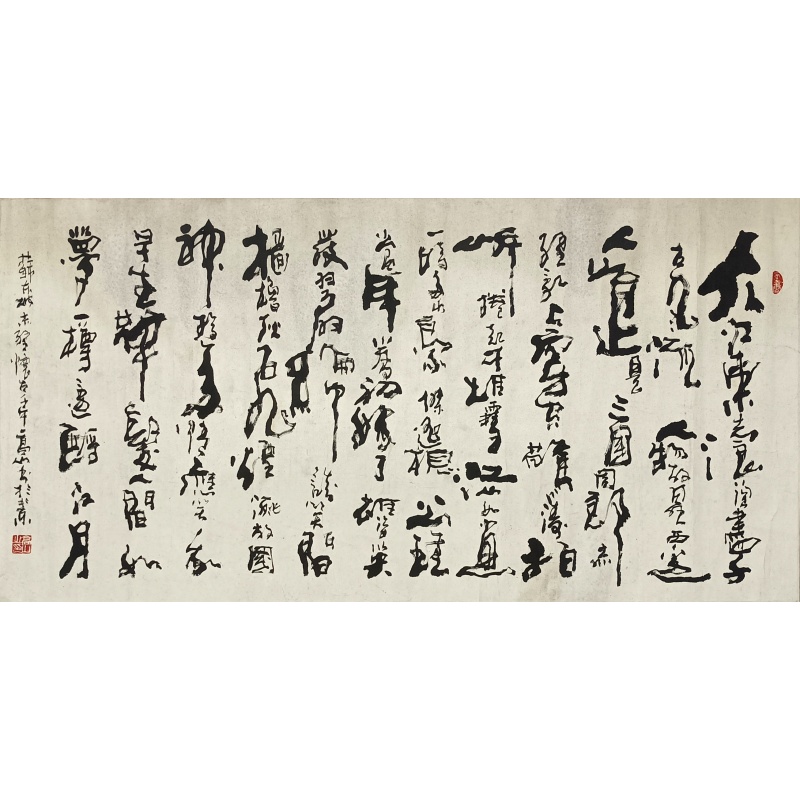 大江東去浪淘盡千
古風流人物故壘西邊
人道是三國周郎赤
壁亂石穿空驚濤拍
岸捲起千堆雪江山如畫
一時多少豪傑遙想公瑾
當年小喬初嫁了雄姿英
發羽扇綸巾談笑間
檣櫓灰飛煙滅故國
神遊多情應笑我
早生華髮人間如
夢一樽還酹江月
蘇東坡赤壁懷古 書於